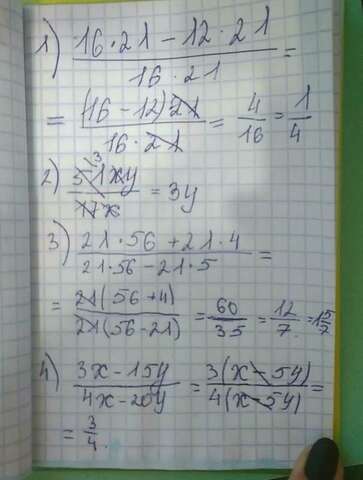 1) (16·21 − 12·21)/(16·21) =
= ((16 − 12)21)/(16·21) = 4/16 = 1/4
2) 51xy/17x = 3y
3
3) (21·56 + 21·4)/(21·56 − 21·5) =
= 21(56+4)/21(56−21) = 60/35 = 12/7 = 1 5/7
4) (3x − 15y)/(4x − 20y) = 3(x − 5y)/4(x − 5y) =
= 3/4.